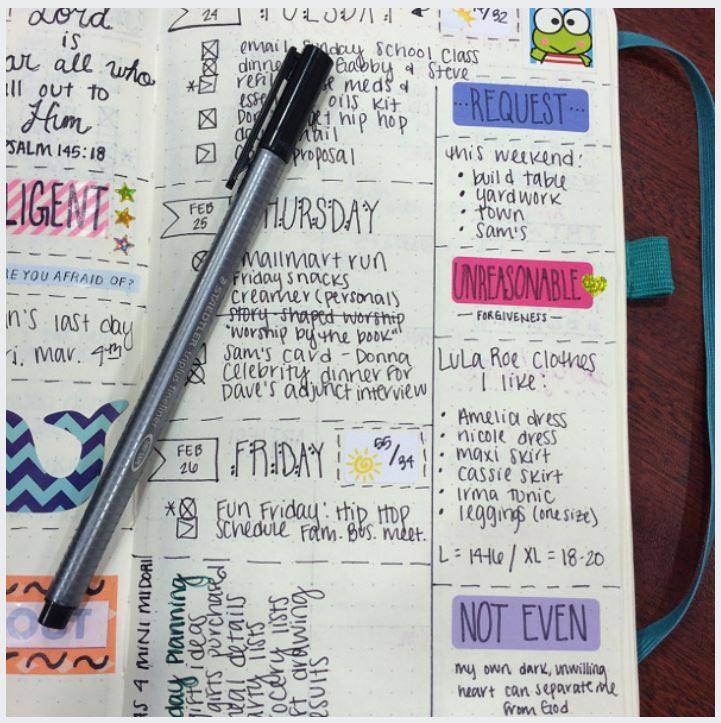 Lord
is
ar all who
ll out to
Him
PSALM 145:18
LIGENT
RE YOU AFRAID OF?
n's last day
ri. mar. 4th
OUT
24 TUESDAY /32
email Sunday School Class
dinner Gabby & Steve
* meds &
oils kit
hip hop
proposal
FEB
25 THURSDAY
Wallmart run
Friday snacks
creamer (personal)
story-shaped worship
"worship by the book"
Sam's card - Donna
Celebrity dinner for
Dave's adjunct interview
STAEDTLER triplus fineliner
FEB
26 FRIDAY 55/34
* Fun Friday: Hip Hop
Schedule Fam. Bus. meet.
AS 4 MINI MIDORI
day planning
ifts ideas
arts purchased
eal details
arty lists
ocery lists
rt drawing
esults
REQUEST
this weekend:
• build table
• yardwork
• town
• Sam's
UNREASONABLE
— FORGIVENESS —
LuLa Roe Clothes
I like:
• Amelia dress
• nicole dress
• maxi skirt
• cassie skirt
• irma tunic
• leggings (one size)
L = 14-16 / XL = 18-20
NOT EVEN
my own dark, unwilling
heart can separate me
from God